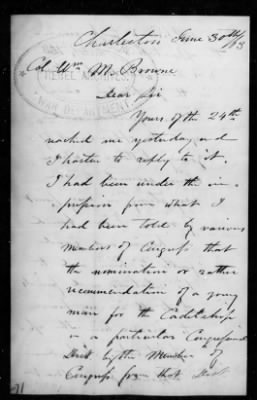 Charleston June 30th/63
Col Wm M. Browne
REBEL ARCHIVES
WAR DEPARTMENT
Dear Sir
Yours of the 24th
reached me yesterday and
I hasten to reply to it.
I had been under the im-
pression from what I
had been told by various
members of Congress that
the nomination or rather
recommendation of a young
man for the Cadetship
in a particular Congressional
Dist by the Member of
Congress from that Dist